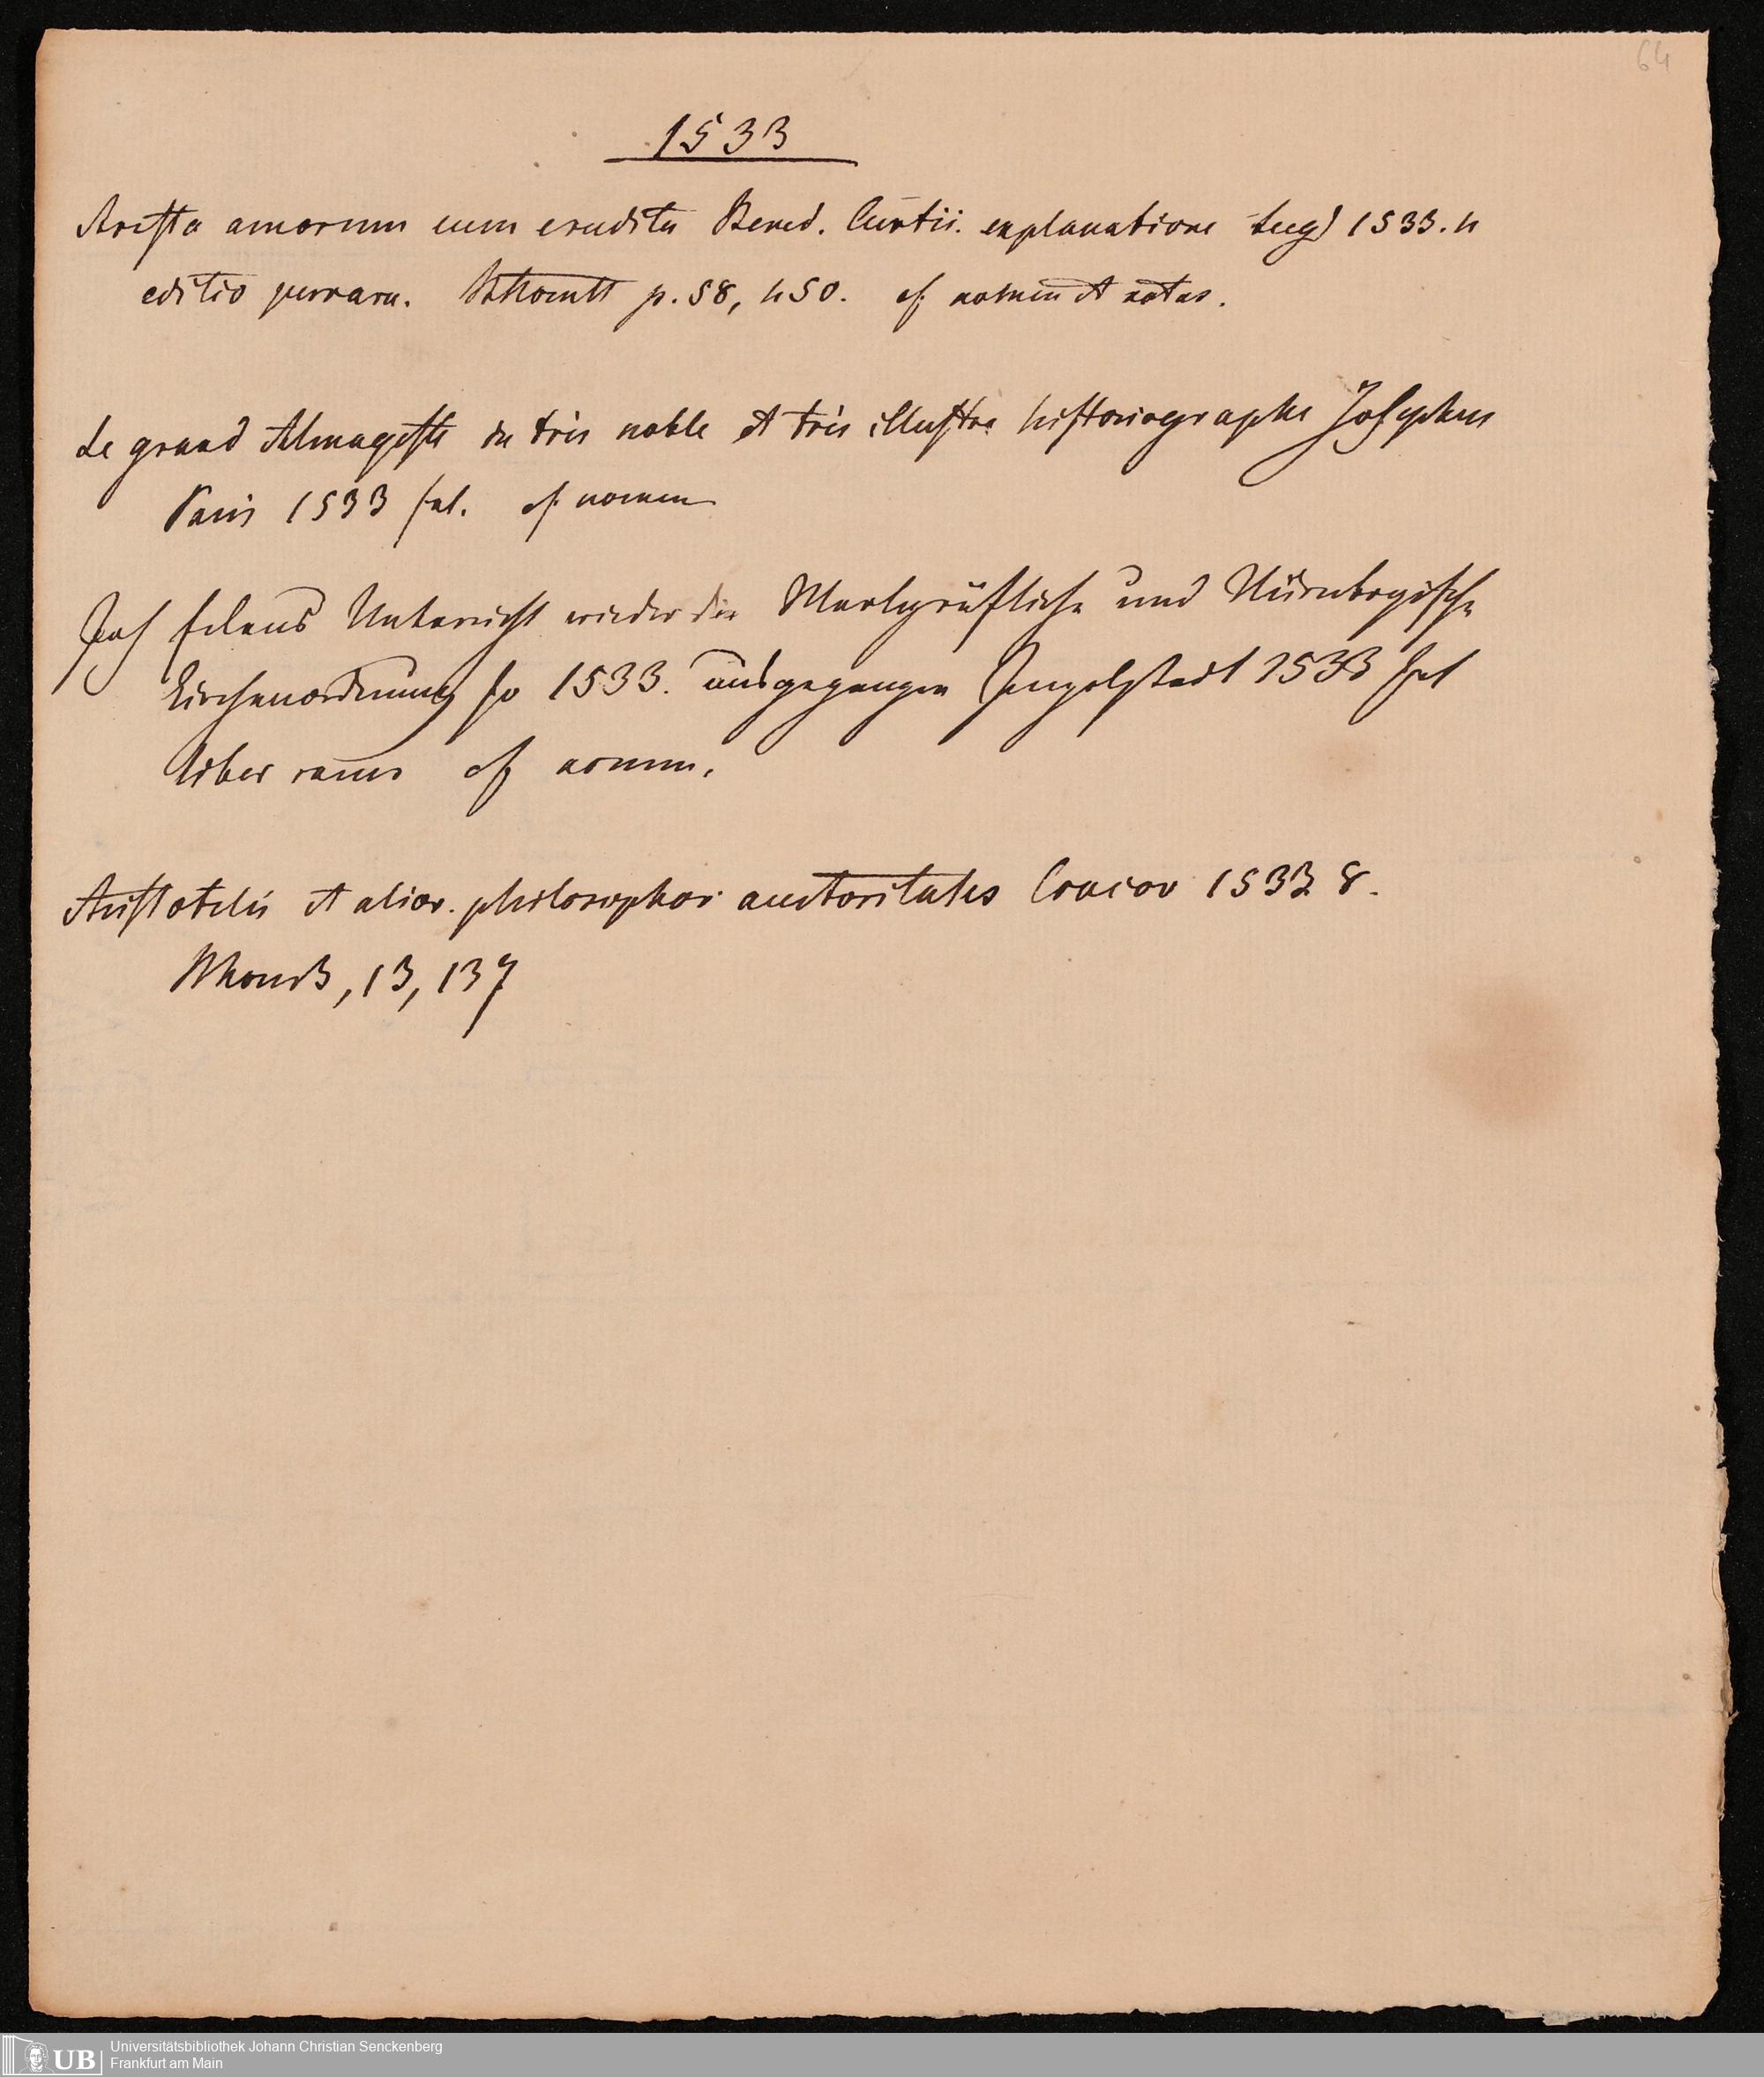 64
1533
Aresta amorum cum erudita Bened. Curtii. explanatione Lugd 1533. 4
editio perrara. p. 58, 450. cf. nomin et notas.
Le grand Almageste du très noble et très illustre historiographe Josephus
Paris 1533 fol. cf. nomen
Joh Eckens Unterricht wieder die Markgräfliche und Nürnbergische
Kirchenordnung so 1533. ausgegangen Ingolstadt 1533
liber rarus cf nomen.
Aristotelis et alior. philosophor auctoritates Cracov 1533 8.
13, 137
Universitätsbibliothek Johann Christian Senckenberg
UB Frankfurt am Main